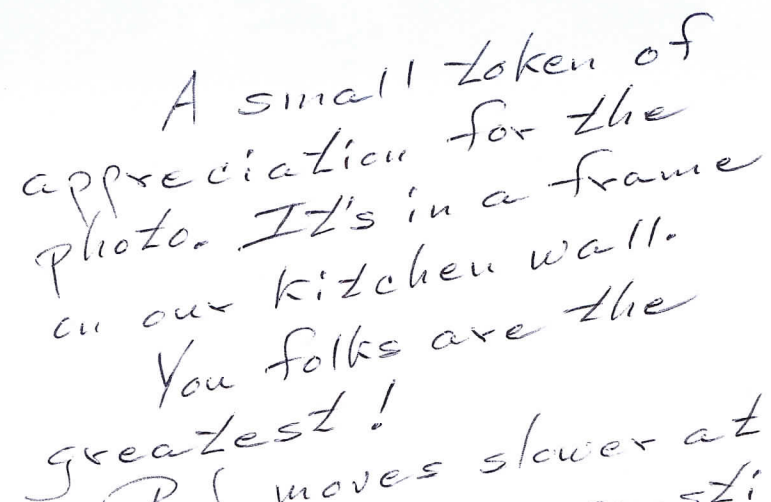 A small token of
appreciation for the
photo. It's in a frame
on our kitchen wall.
You folks are the
greatest!
moves slower at